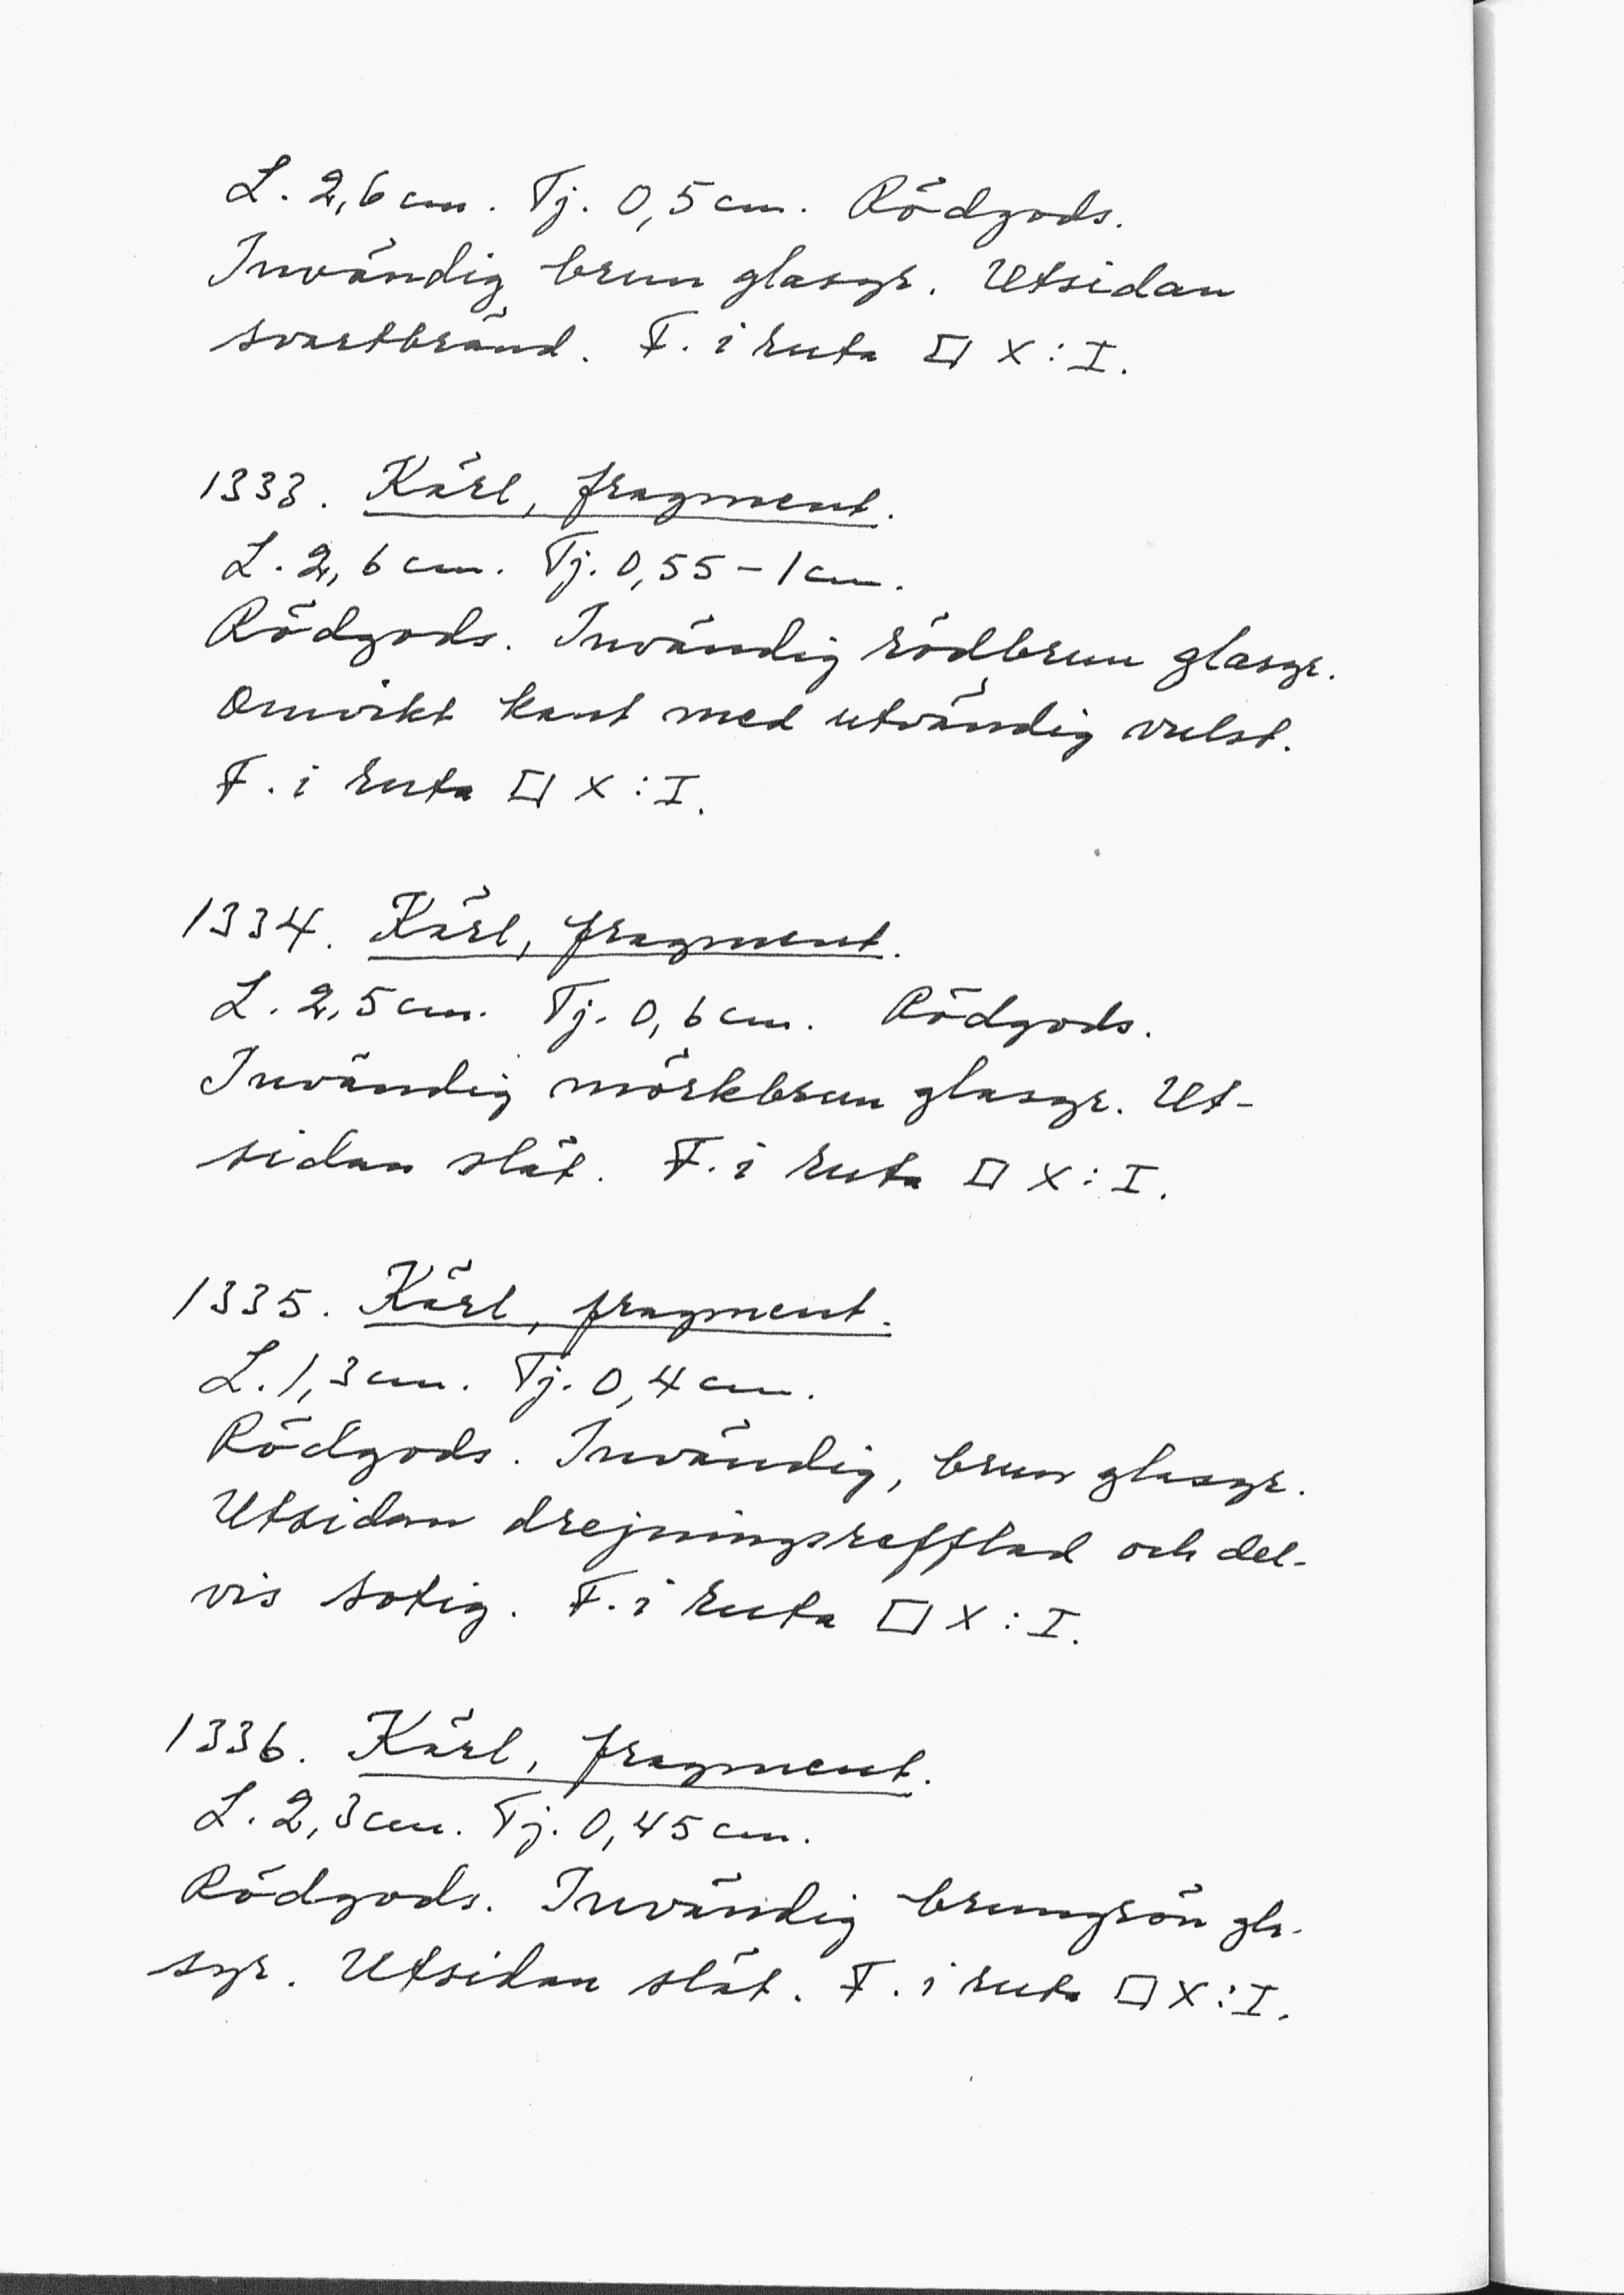 L. 2,6 cm. Tj. 0,5 cm. Rödgods.
Invändig brun glasyr. Utsidan
svartbränd. F. i ruta □ X : I.
1333. Kärl, fragment.
L. 2,6 cm. Tj. 0,55 – 1 cm.
Rödgods. Invändig rödbrun glasyr.
Omvikt kant med utvändig vulst.
F. i ruta □ X : I.
1334. Kärl, fragment.
L. 2,5 cm. Tj. 0,6 cm. Rödgods.
Invändig mörkbrun glasyr. Ut-
sidan slät. F. i ruta □ X : I.
1335. Kärl, fragment.
L. 1,3 cm. Tj. 0,4 cm.
Rödgods. Invändig, brun glasyr.
Utsidan drejningsrefflad och del-
vis sotig. F. i ruta □ X : I.
1336. Kärl, fragment.
L. 2,3 cm. Tj. 0,45 cm.
Rödgods. Invändig brungrön gla-
syr. Utsidan slät. F. i ruta □ X : I.